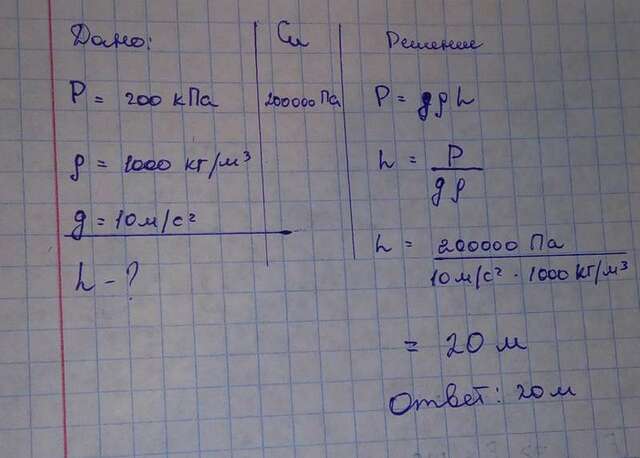 Дано:
P = 200 кПа
ρ = 1000 кг/м³
g = 10 м/с²
h - ?
Си
200000 Па
Решение
P = gρh
h = P / gρ
h = 200000 Па / 10 м/с² · 1000 кг/м³
= 20 м
Ответ: 20 м